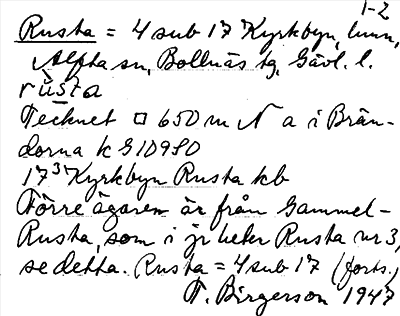 1-2
Rusta = 4 sub 17 Kyrkbyn, hmn,
Alfta sn, Bollnäs tg, Gävl. l.
rùsta
Tecknet □ 650 m N a i Brän-
dorna k G10980
17³ Kyrkbyn Rusta kb
Förre ägaren är från Gammel-
Rusta, som i jr heter Rusta nr 3,
se detta. Rusta = 4 sub 17 (forts.)
F. Birgerson 1947